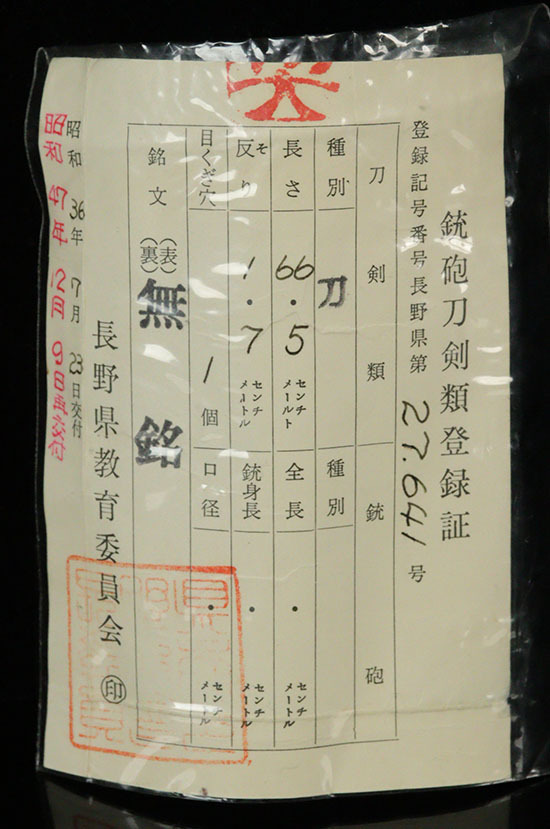 銃砲刀剣類登録証
登録記号番号長野県第27.641号
刀剣類 銃砲
種別 刀 種別
長さ 66.5 センチメールト 全長 ・ センチメートル
反り そ 1.7 センチメートル 銃身長 ・ センチメートル
目くぎ穴 1個 口径 ・ センチメートル
銘文 (表) (裏) 無銘
長野県教育委員会 ㊞
昭和36年7月23日交付
昭和47年12月9日再交付